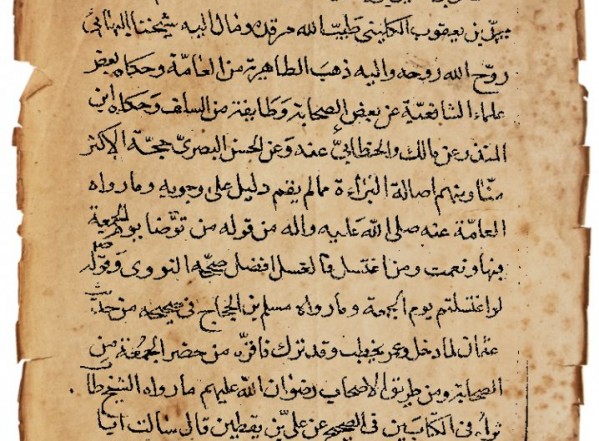 بن يعقوب الكليني طيب الله مرقده ومال اليه شيخنا البهائي
روح الله روحه واليه ذهب الظاهرية من العامة وحكاه بعض
علماء الشافعية عن بعض الصحابة وطايفة من السلف وحكاه ابن
المنذر عن مالك والخطابي عنه وعن الحسن البصري حجة الاكثر
منا ومنهم اصالة البراءة ما لم يقم دليل على وجوبه وما رواه
العامة عنه صلى الله عليه واله من قوله من توضا يوم الجمعة
فبها ونعمت ومن اغتسل فالغسل افضل صححه النووي وقوله صلعم
لو اغتسلتم يوم الجمعة وما رواه مسلم بن الحجاج في صحيحه من حديث
عثمان لما دخل وعمر يخطب وقد ترك فاقره من حضر الجمعة من
الصحابة ومن طريق الاصحاب رضوان الله عليهم ما رواه الشيخ طاب
ثراه في الكتابين في الصحيح عن علي بن يقطين قال سالت ابا